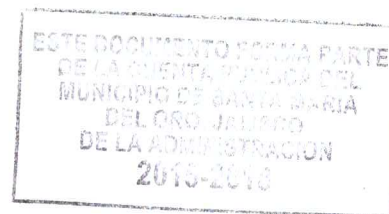 ESTE DOCUMENTO FORMA PARTE
DE LA CUENTA PUBLICA DEL
MUNICIPIO DE SANTA MARIA
DEL ORO JALISCO
DE LA ADMINISTRACION
2015-2018